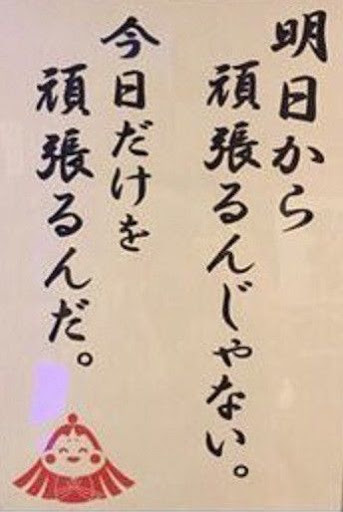 明日から
頑張るんじゃない。
今日だけを
頑張るんだ。